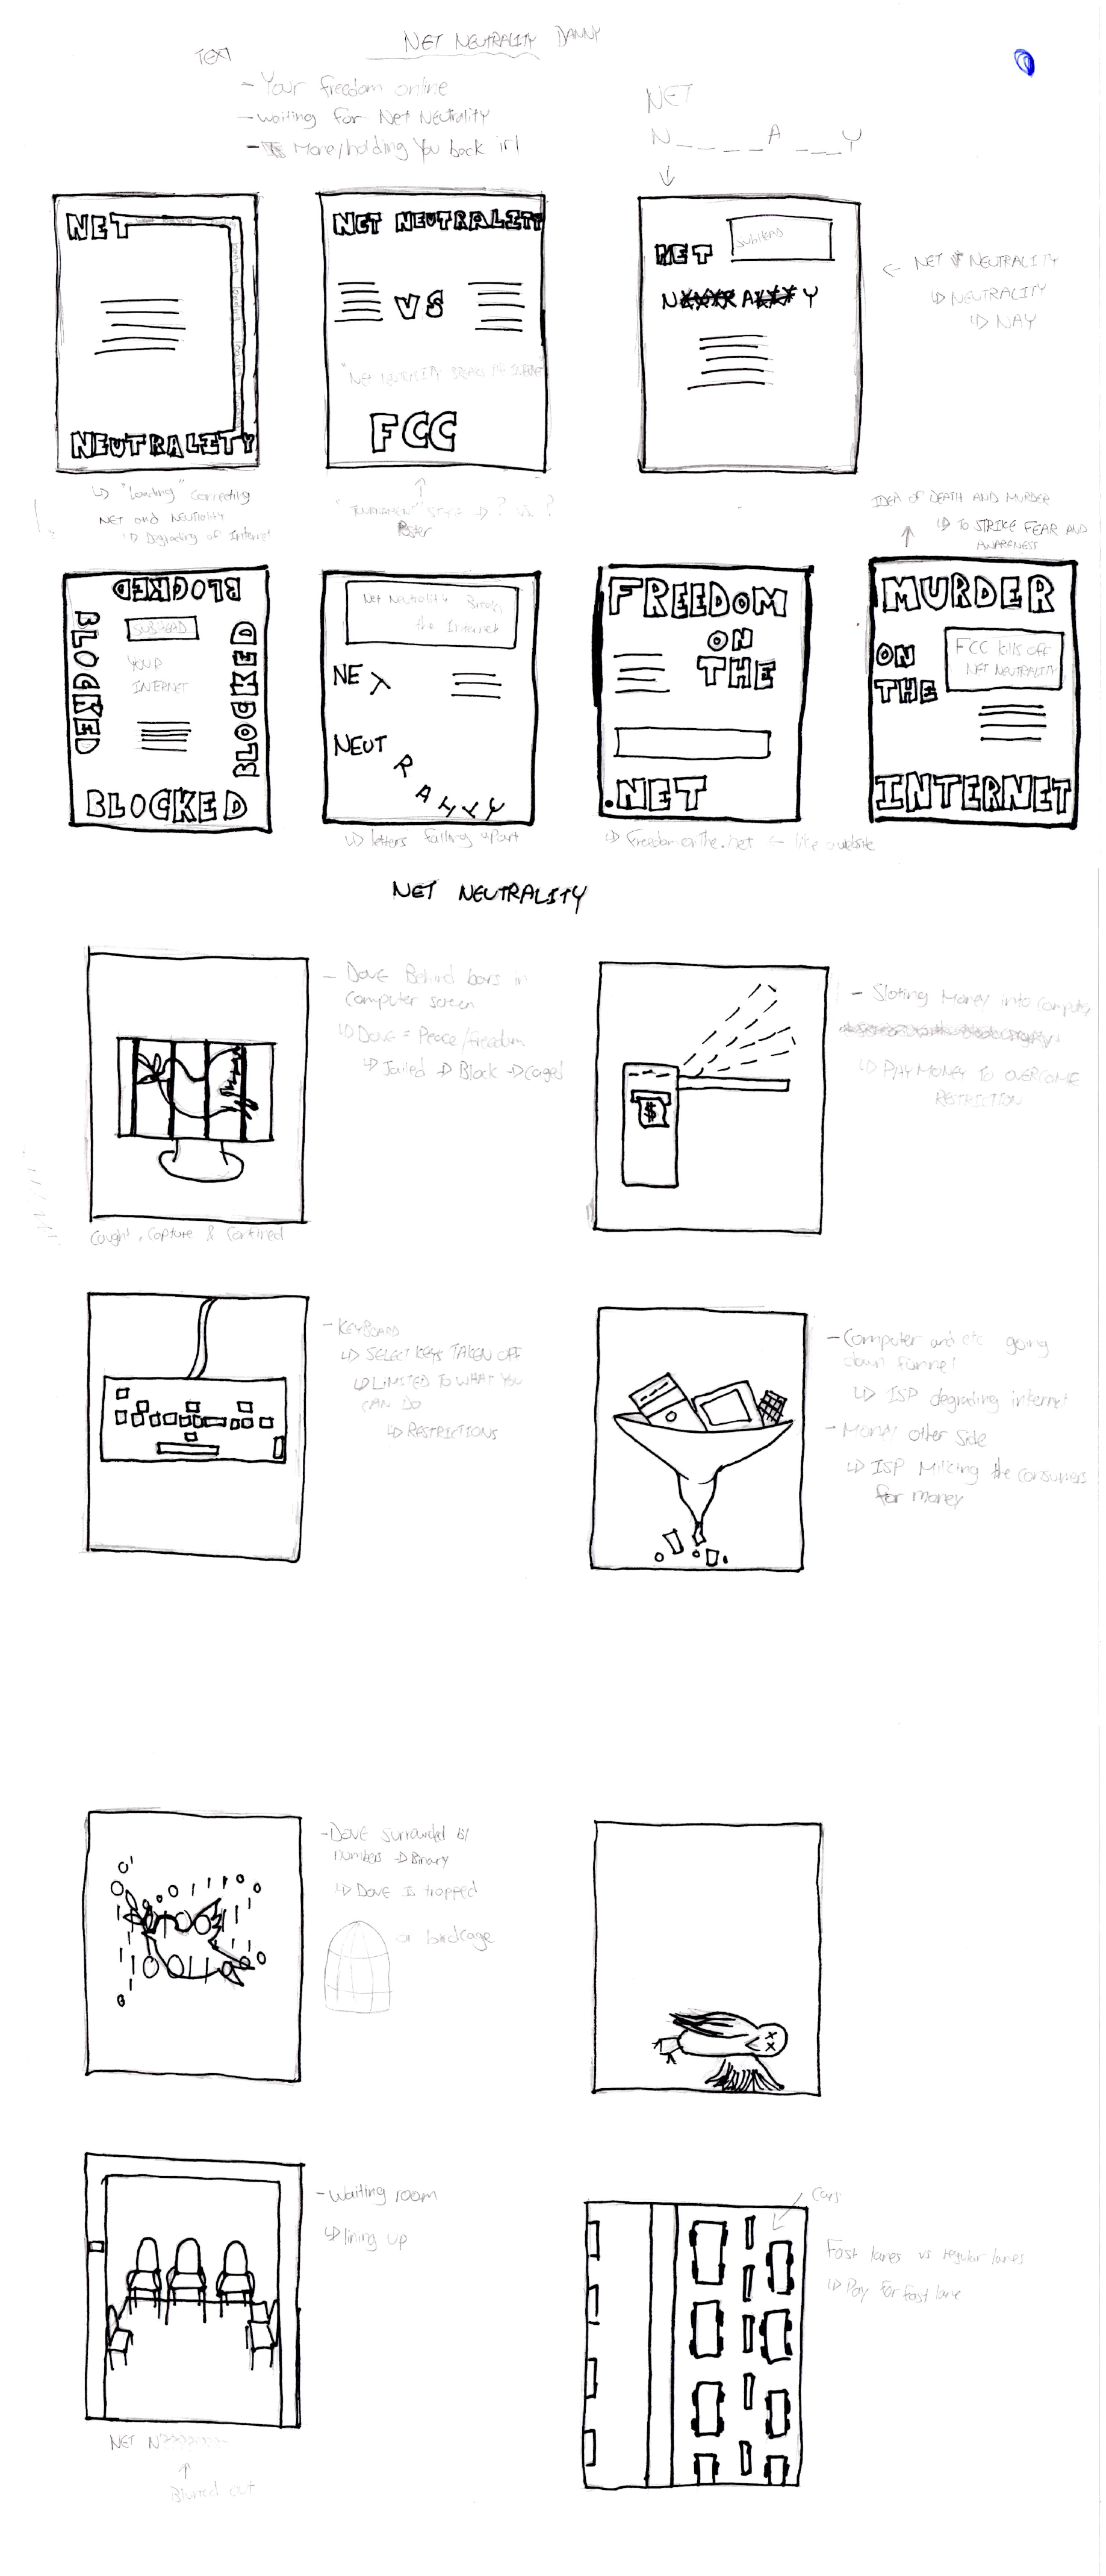 NET NEUTRALITY DANNY
TEXT
- Your freedom online
- waiting for Net Neutrality
- More/holding You back irl
NET
N _ _ _ _ A _ _ _ Y
NET
NEUTRALITY
↳ "Loading" connecting
NET and NEUTRALITY
↳ Degrading of Internet
NET NEUTRALITY
VS
"NET NEUTRALITY BREAKS THE INTERNET
FCC
"TOURNAMENT" STYLE → ? vs. ?
Poster
NET
SUBHEAD
N RA Y
← NET NEUTRALITY
↳ NEUTRALITY
↳ NAY
BLOCKED
BLOCKED
SUBHEAD
YOUR
INTERNET
BLOCKED
BLOCKED
Net Neutrality Breaks
the Internet
NET
NEUTRALITY
↳ letters falling apart
FREEDOM
ON
THE
.NET
↳ Freedomonthe.net ← like a website
IDEA OF DEATH AND MURDER
↳ TO STRIKE FEAR AND
AWARENESS
MURDER
ON
THE
FCC kills off
NET NEUTRALITY
INTERNET
NET NEUTRALITY
- Dove Behind bars in
Computer screen
↳ Dove = Peace/freedom
↳ Jailed → Block → Caged
Caught, Capture & Confined
$
- Sloting Money into Computer
↳ PAY MONEY TO OVERCOME
RESTRICTION
- KEYBOARD
↳ SELECT KEYS TAKEN OFF
↳ LIMITED TO WHAT YOU
CAN DO
↳ RESTRICTIONS
- Computer and etc going
down funnel
↳ ISP degrading internet
- Money other side
↳ ISP Milking the consumers
for money
- Dove surrounded by
numbers → Binary
↳ Dove is trapped
or birdcage
- Waiting room
↳ lining up
NET N
↑
Blurred out
Cars
Fast lanes vs regular lanes
↳ Pay for fast lane